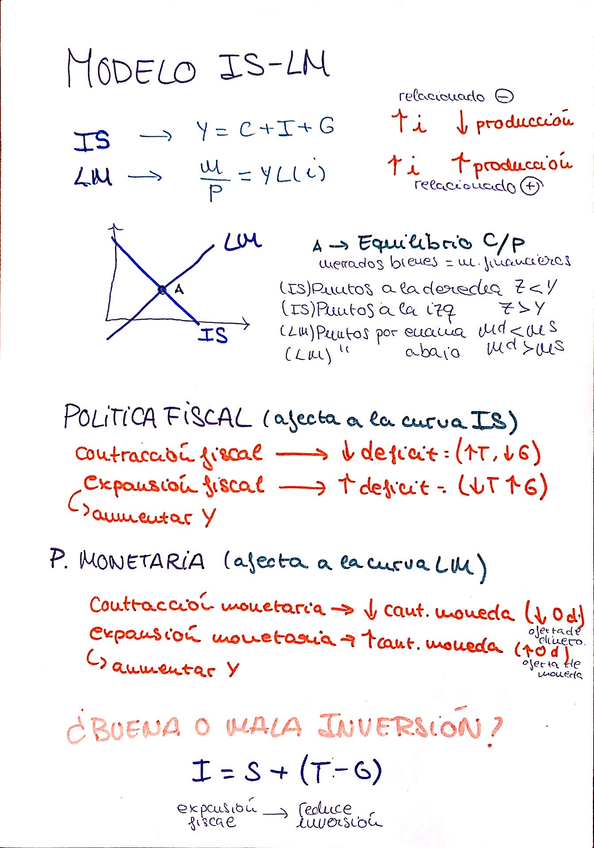 MODELO IS-LM
relacionado ⊖
IS → Y = C + I + G
↑i ↓ producción
LM → M/P = YL(i)
↑i ↑ producción
relacionado ⊕
LM
A
IS
A → Equilibrio C/P
mercados bienes = m. financieros
(IS) Puntos a la derecha Z < Y
(IS) Puntos a la izq Z > Y
(LM) Puntos por encima Md < Ms
(LM) " abajo Md > Ms
POLITICA FISCAL (afecta a la curva IS)
contracción fiscal → ↓ deficit = (↑T, ↓G)
expansión fiscal → ↑ deficit = (↓T ↑G)
↳ aumentar Y
P. MONETARIA (afecta a la curva LM)
Contracción monetaria → ↓ cant. moneda (↓ Od)
oferta de dinero
expansión monetaria → ↑ cant. moneda (↑ Od)
oferta de moneda
↳ aumentar Y
¿BUENA O MALA INVERSIÓN?
I = S + (T - G)
expansión fiscal → reduce inversión